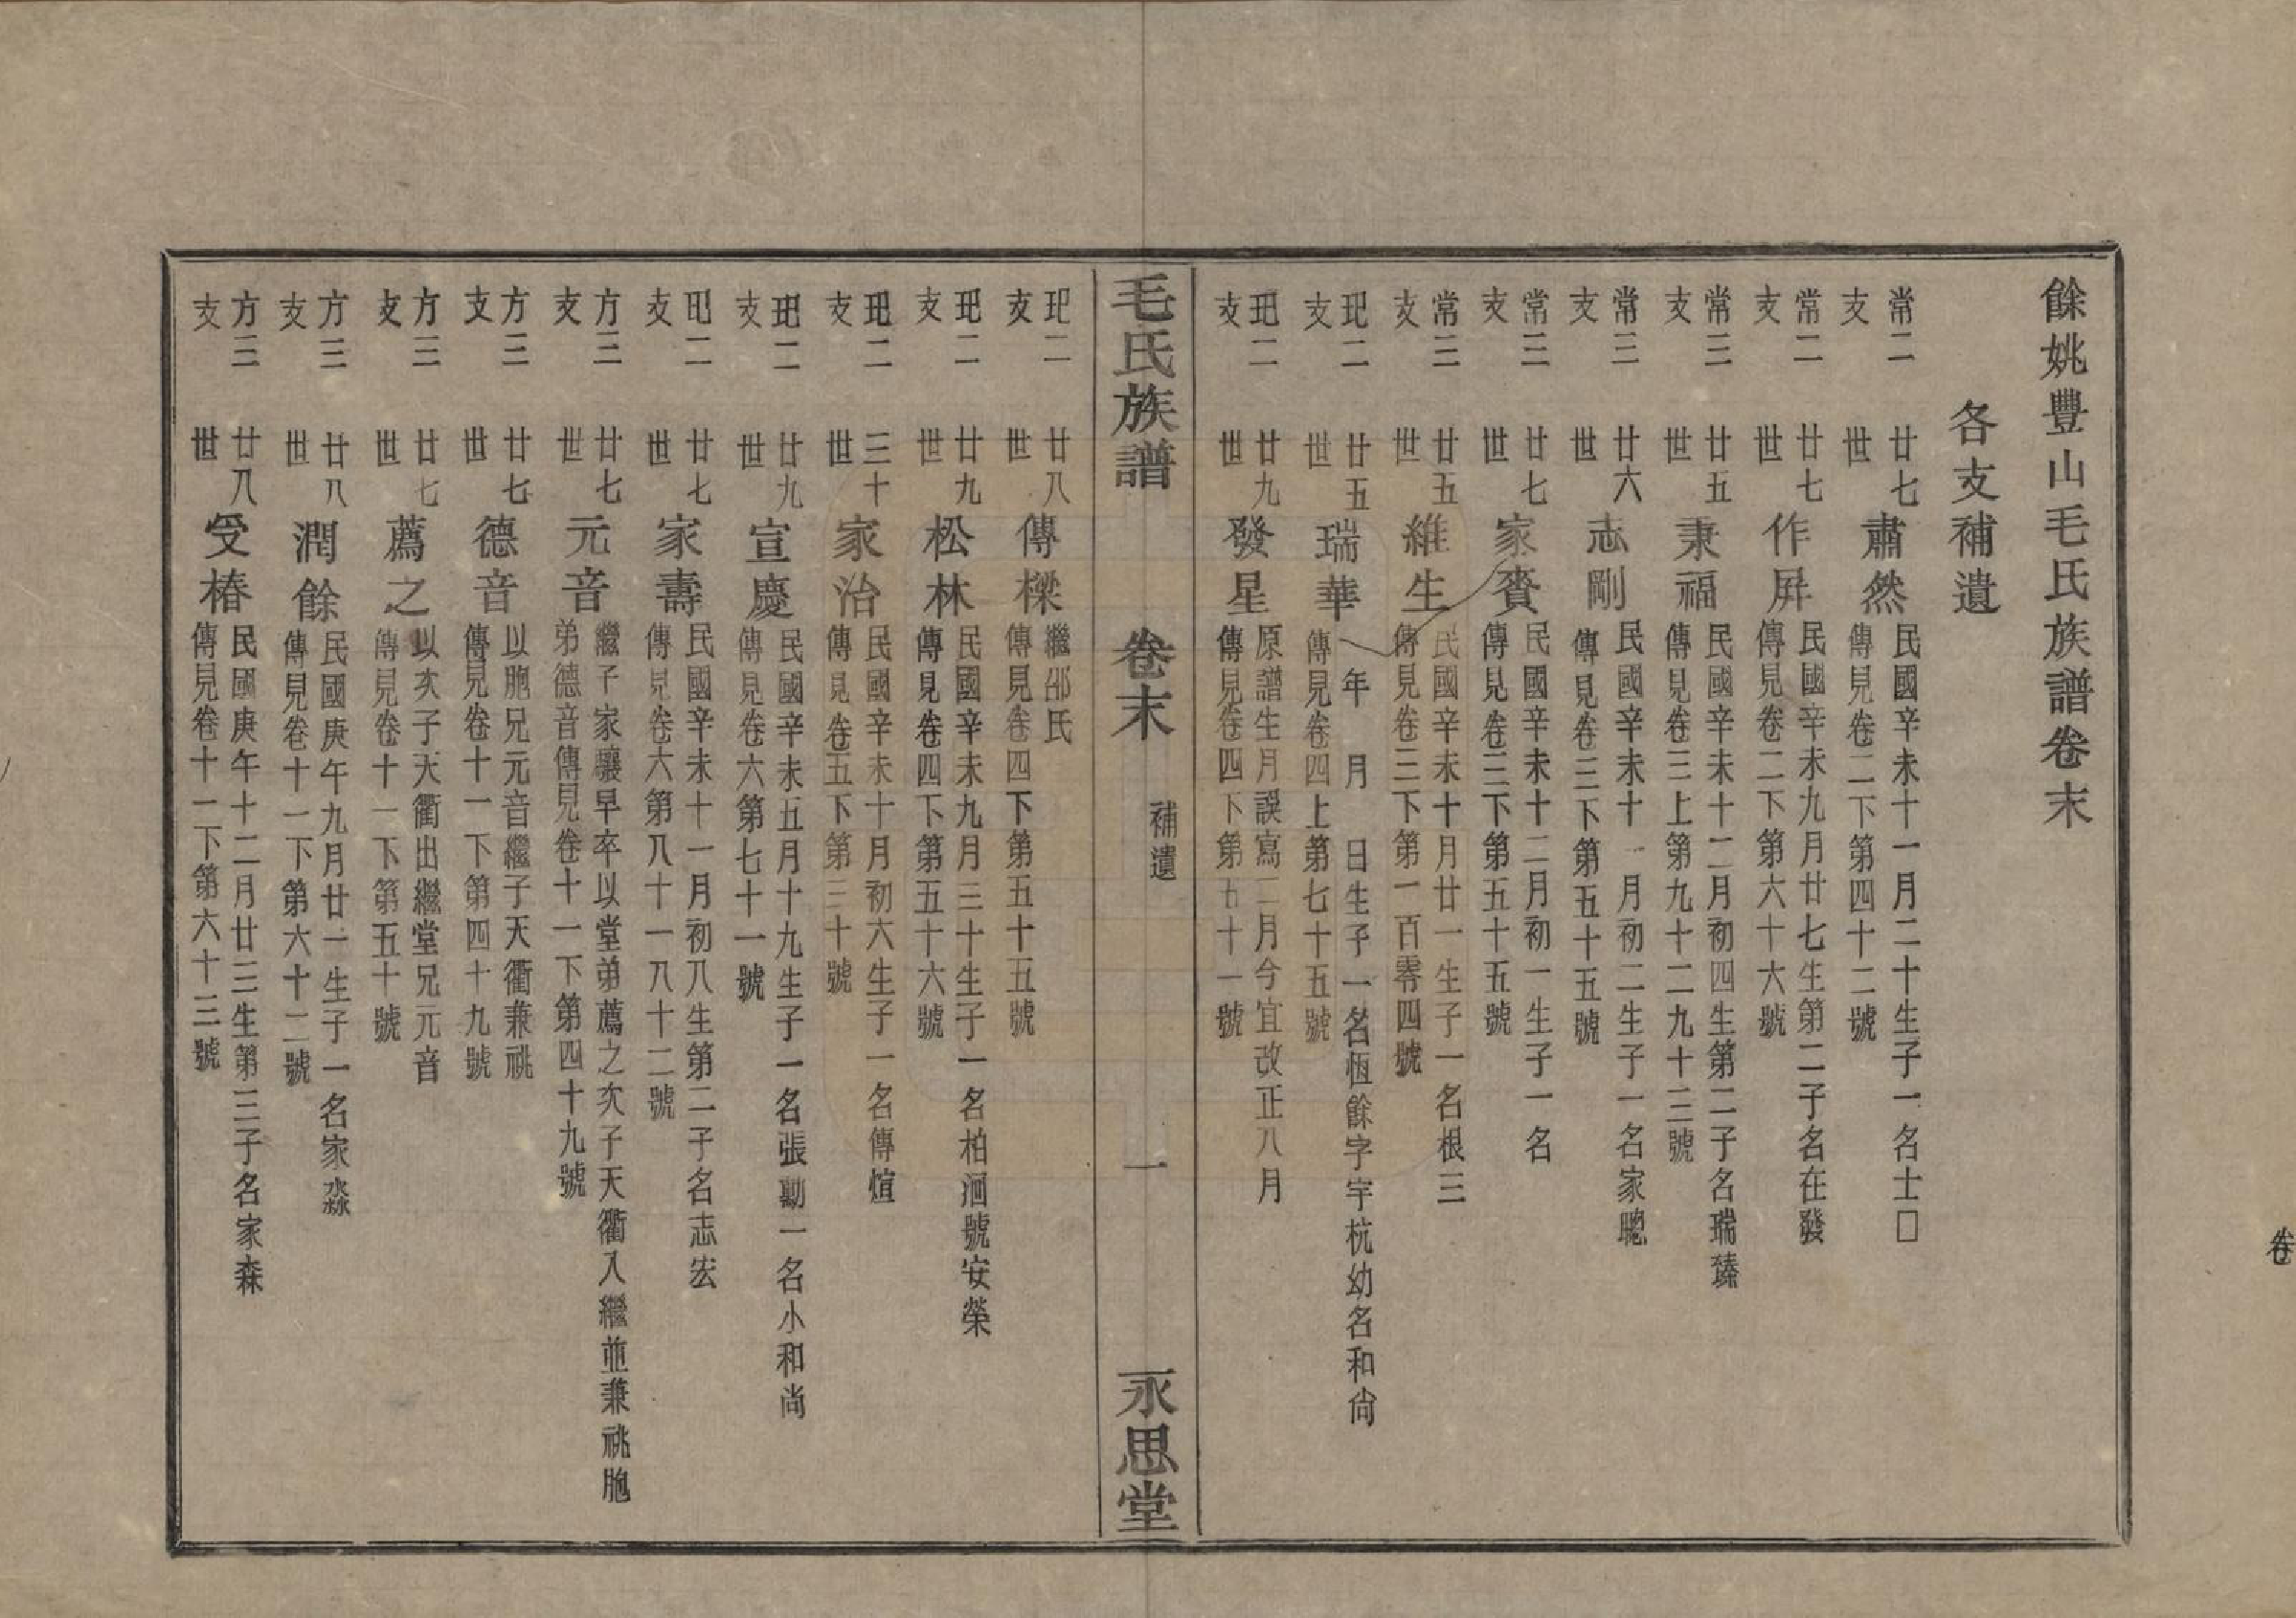 餘姚豐山毛氏族譜卷末
各支補遺
常二支 廿七世 肅然 民國辛未十一月二十生子一名士□
傳見卷二下第四十二號
常二支 廿七世 作屏 民國辛未九月廿七生第二子名在發
傳見卷二下第六十六號
常三支 廿五世 秉福 民國辛未十二月初四生第二子名瑞臻
傳見卷三上第九十二九十三號
常三支 廿六世 志剛 民國辛未十一月初二生子一名家聰
傳見卷三下第五十五號
常三支 廿七世 家賚 民國辛未十二月初一生子一名
傳見卷三下第五十五號
常三支 廿五世 維生 民國辛未十月廿一生子一名根三
傳見卷三下第一百零四號
玘二支 廿五世 瑞華 年 月 日生子一名恆餘字宇杭幼名和尙
傳見卷四上第七十五號
玘二支 廿九世 發星 原譜生月誤寫二月今宜改正八月
傳見卷四下第五十一號
毛氏族譜 卷末 補遺 一 永思堂
玘二支 廿八世 傳樑 繼邵氏
傳見卷四下第五十五號
玘二支 廿九世 松林 民國辛未九月三十生子一名柏洄號安榮
傳見卷四下第五十六號
玘二支 三十世 家治 民國辛未十月初六生子一名傳愃
傳見卷五下第三十號
玘二支 廿九世 宣慶 民國辛未五月十九生子一名張勳一名小和尚
傳見卷六第七十一號
玘二支 廿七世 家壽 民國辛未十一月初八生第二子名志宏
傳見卷六第八十一八十二號
方三支 廿七世 元音 繼子家驤早卒以堂弟薦之次子天衢入繼並兼祧胞
弟德音傳見卷十一下第四十九號
方三支 廿七世 德音 以胞兄元音繼子天衢兼祧
傳見卷十一下第四十九號
方三支 廿七世 薦之 以次子天衢出繼堂兄元音
傳見卷十一下第五十號
方三支 廿八世 潤餘 民國庚午九月廿一生子一名家淼
傳見卷十一下第六十二號
方三支 廿八世 受椿 民國庚午十二月廿三生第三子名家森
傳見卷十一下第六十三號
卷